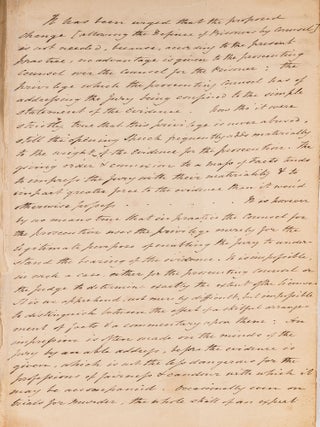 It has been urged that the proposed
change [allowing the Defence of Prisoners by Counsel]
is not needed, because, according to the present
practice, no advantage is given to the prosecuting
Counsel over the Counsel for the Prisoner; the
privilege which the prosecuting Counsel has of
addressing the Jury being confined to the simple
statement of the Evidence. Now tho' it were
strictly true that this privilege is never abused,
still the opening Speech frequently adds materially
to the weight of the Evidence for the prosecution. The
giving order & concision to a mass of Facts tends
to impress the Jury with their materiality & to
impart greater force to the evidence than it would
otherwise possess. It is however
by no means true that in practice the Counsel for
the prosecution uses the privilege merely for the
legitimate purposes of enabling the Jury to under
stand the bearing of the evidence. It is impossible,
in such a case either for the prosecuting counsel or
the Judge to determine exactly the extent of the licence.
It is we apprehend, not merely difficult, but impossible
to distinguish between the effect of a skilful arrange
ment of facts & a commentary upon them: An
impression is often made on the minds of the
Jury by an able address, before the evidence is
given, which is not the less dangerous for the
professions of fairness & candour with which it
may be accompanied. Occasionally even on
trials for Murder, the whole skill of an expert